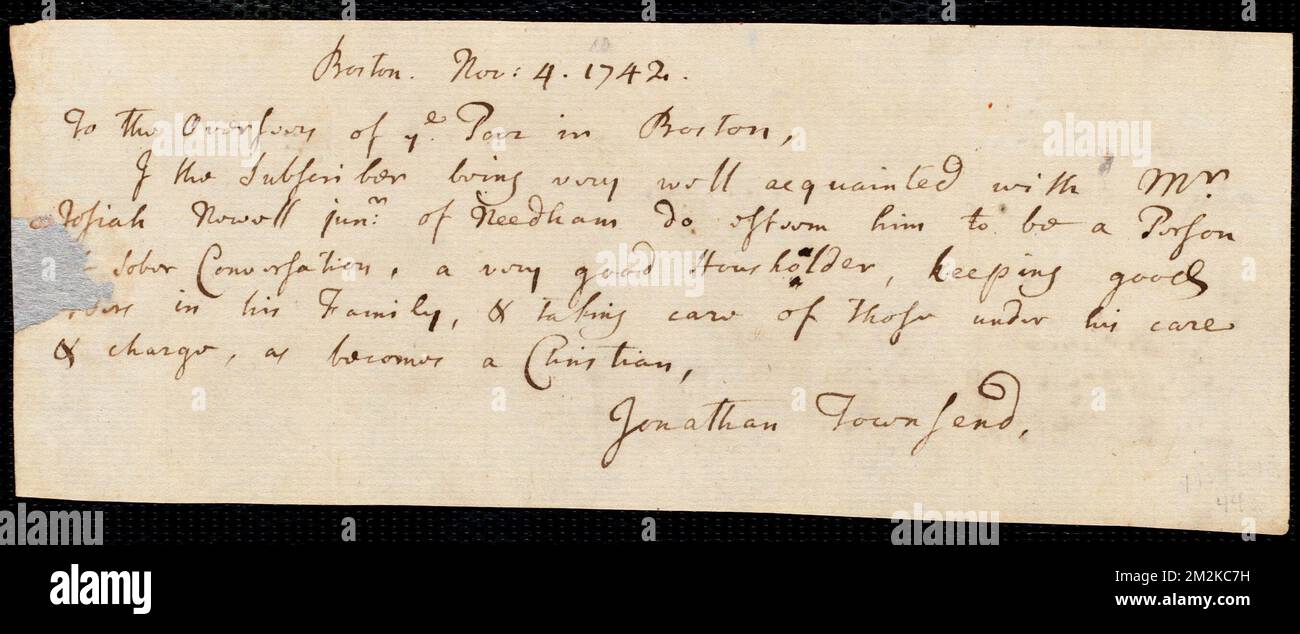 Boston. Nov: 4. 1742.
To the Overseers of yᵉ Poor in Boston,
I the Subscriber being very well acquainted with Mr
Josiah Newell junr. of Needham do esteem him to be a Person
sober Conversation, a very good Housholder, keeping good
in his Family, & taking care of those under his care
& charge, as becomes a Christian,
Jonathan Townsend.
44
alamy
Image ID: 2M2KC7H
www.alamy.com